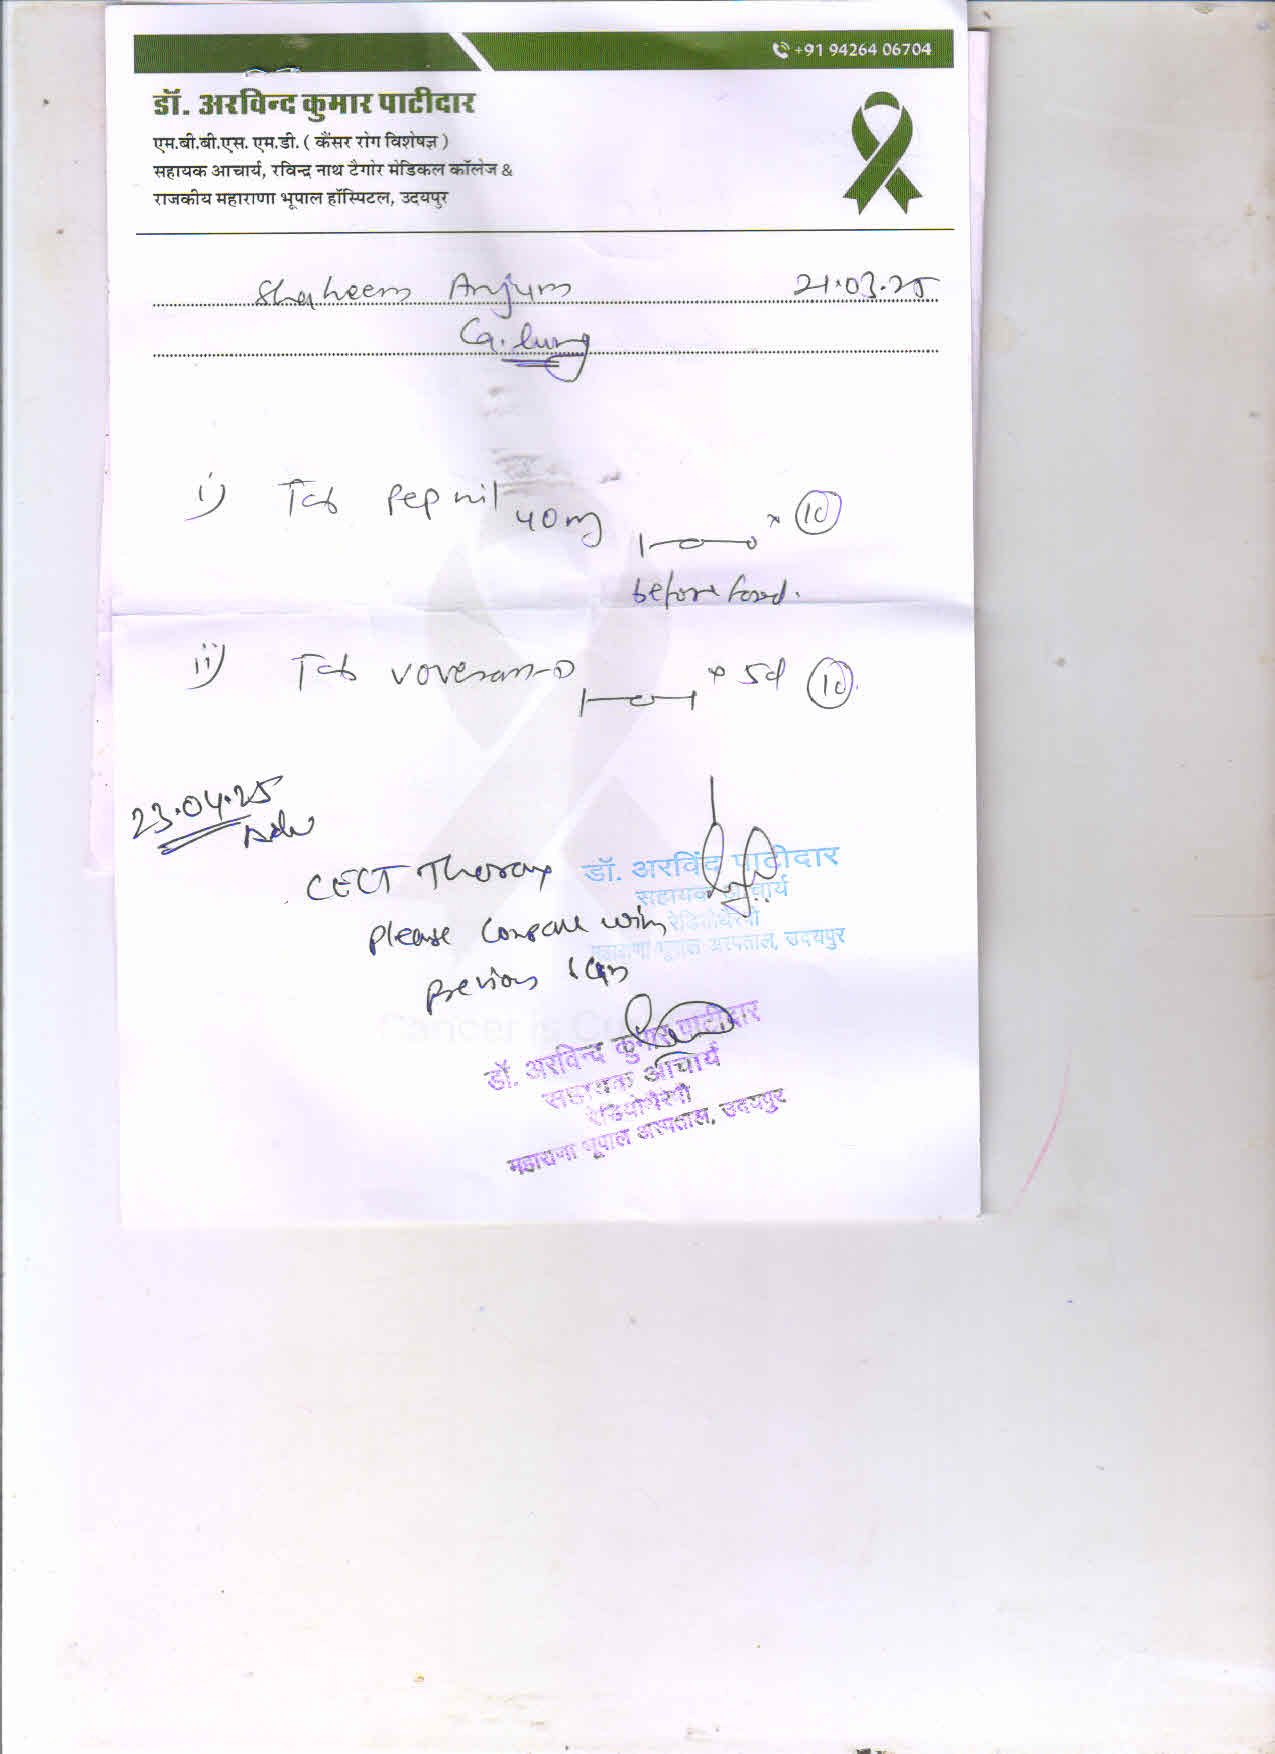 +91 94264 06704
डॉ. अरविन्द कुमार पाटीदार
एम.बी.बी.एस. एम.डी. ( कैंसर रोग विशेषज्ञ )
सहायक आचार्य, रविन्द्र नाथ टैगोर मेडिकल कॉलेज &
राजकीय महाराणा भूपाल हॉस्पिटल, उदयपुर
Shaheem Anjum 21.03.25
Ca. lung
i) Tab Pepnil 40mg 1—o—o × 10
before food.
ii) Tab Voveran-D 1—o—1 × 5d 10
23.04.25
Adv
CECT Thorax
please compare with
previous scan
डॉ. अरविंद पाटीदार
सहायक आचार्य
रेडियोथैरेपी
महाराणा भूपाल अस्पताल, उदयपुर
डॉ. अरविन्द कुमार पाटीदार
सहायक आचार्य
रेडियोथैरेपी
महाराणा भूपाल अस्पताल, उदयपुर